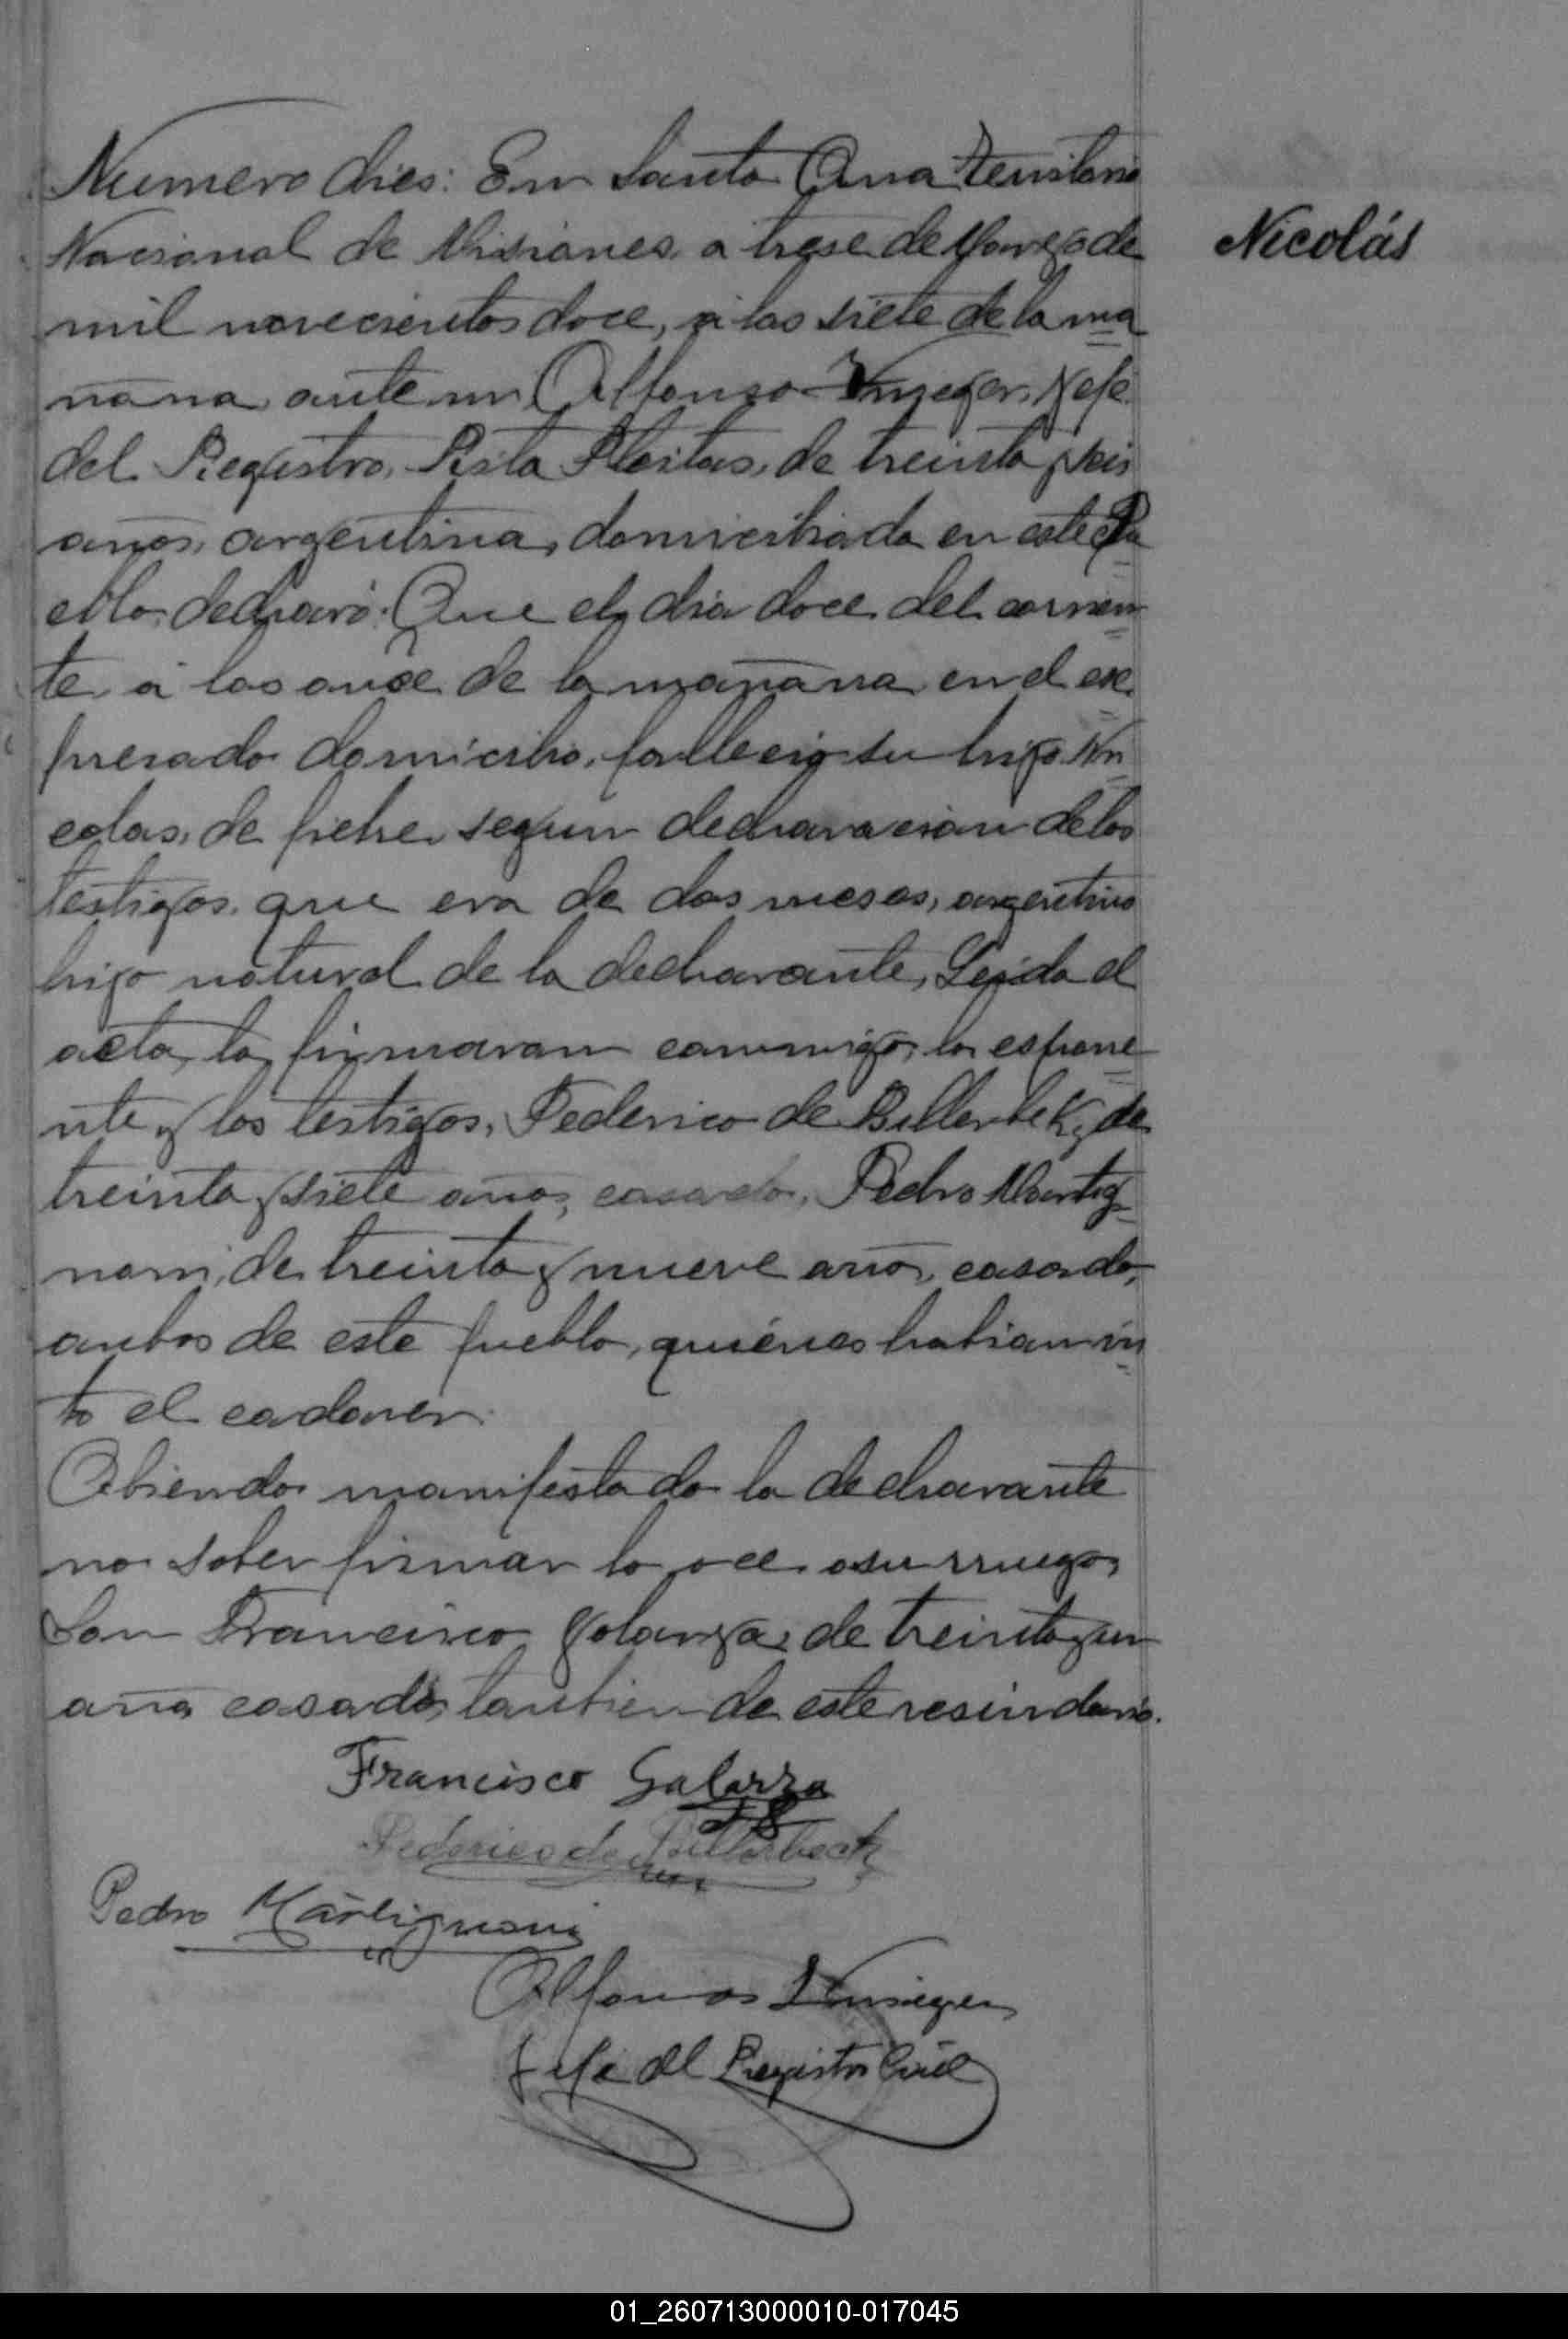 Numero dies: En Santa Ana Territorio
Nicolás
Nacional de Misiones, a trese de Marzo de
mil novecientos doce, a las siete de la ma
ñana, ante mi Alfonso Jefe
del Registro, de treinta y seis
años, argentina, domiciliada en este Pu
eblo, declaró: Que el dia doce del corrien
te a las onse de la mañana en el ex
presado domicilio, fallecio su hijo Ni
colas, de fiebre segun declaracion de los
testigos, que era de dos meses, argentino
hijo natural de la declarante, Leida el
acta, la firmaron conmigo, la espone
nte y los testigos, Federico de Billerbek, de
treinta y siete años, casado, Pedro Martig
noni, de treinta y nueve años, casado,
anbos de este pueblo, quiénes habian vis
to el cadaver.
Abiendo manifestado la declarante
no saber firmar lo ace a su rruego,
Don Francisco Galarza, de treinta y un
año casado, tanbien de este vesindario.
Francisco Galarza
Federico de Billerbeck
Pedro Martignoni
Alfonso
Jefe del Registro Civil
01_260713000010-017045